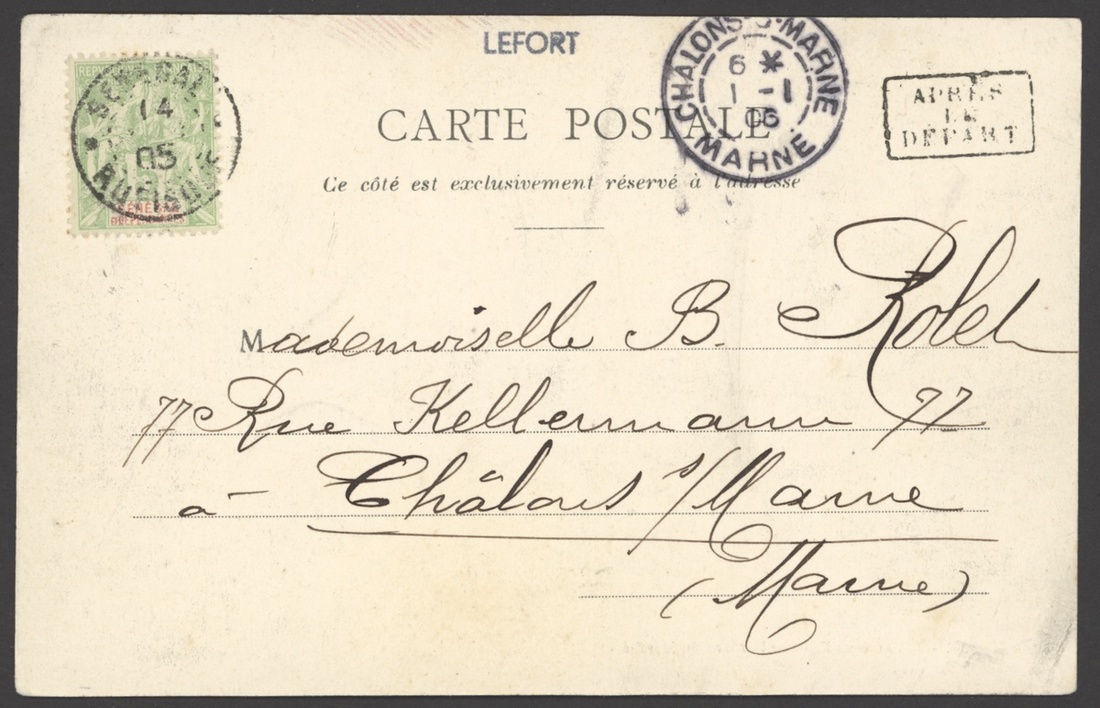 LEFORT
SÉNÉGAL
14
05
RUFISQUE
CHALONS-S-MARNE
6 *
1 - 1
06
MARNE
APRÈS
LE
DÉPART
CARTE POSTALE
Ce côté est exclusivement réservé à l'adresse
Mademoiselle B. Rolet
77 Rue Kellermann 77
à Châlons s/Marne
(Marne)